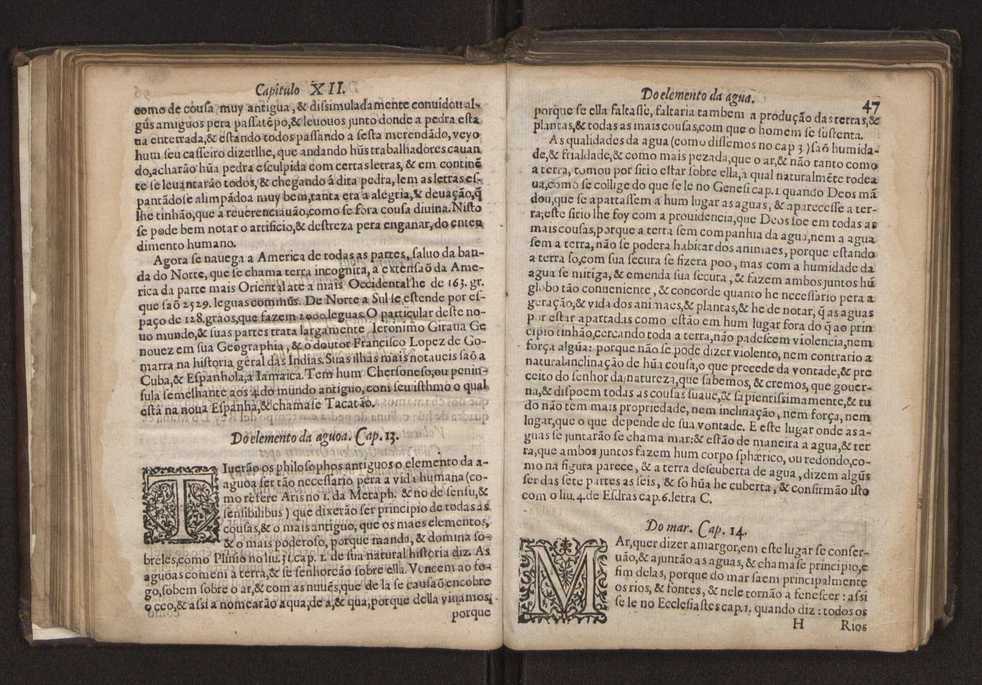 Capitulo XII.
como de cousa muy antigua, & dissimuladamente conuidou al-
gũs amiguos pera passatẽpo, & leuouos junto donde a pedra esta
ua enterrada, & estando todos passando a sesta merendãdo, veyo
hum seu casseiro dizerlhe, que andando hũs trabalhadores cauan
do, acharão hũa pedra esculpida com certas letras, & em continẽ
te se leuantarão todos, & chegando á dita pedra, lem as letras es-
pantãdose alimpádoa muy bem, tanta era a alegria, & deuação, q̃
lhe tinhão, que a reuerenciauão, como se fora cousa diuina. Nisto
se pode bem notar o artificio, & destreza pera enganar, do enten
dimento humano.
Agora se nauega a America de todas as partes, saluo da ban-
da do Norte, que se chama terra incognita, a extensaõ da Ame-
rica da parte mais Oriental ate a mais Occidental he de 163. gr.
que saõ 2529. leguas commũs. De Norte a Sul se estende por es-
paço de 128. graos, que fazem 2000. leguas. O particular deste no-
uo mundo, & suas partes trata largamente Ieronimo Giraua Ge
nouez em sua Geographia, & o doutor Francisco Lopez de Go-
marra na historia geral das Indias. Suas ilhas mais notaueis saõ a
Cuba, & Espanhola, a Iamaica. Tem hum Chersoneso, ou penin-
sula semelhante aos do mundo antiguo, com seu isthmo o qual
està na noua Espanha, & chamase Tacatão.
Do elemento da aguoa. Cap. 13.
TIuerão os philosophos antiguos o elemento da a-
aguoa ser tão necessario pera a vida humana (co-
mo refere Aris no 1. da Metaph. & no de sensu, &
sensibilibus) que dixerão ser principio de todas as
cousas, & o mais antiguo, que os mais elementos,
& o mais poderoso, porque manda, & domina so-
breles, como Plinio no liu. 31. cap. 1. de sua natural historia diz. As
aguoas comem a terra, & se senhoreão sobre ella. Vencem ao fo-
go, sobem sobre o ar, & com as nuuẽs, que de la se causaõ encobre
o ceo, & assi a nomearão aqua, de a, & qua, porque della viuamos,
porque
Do elemento da agua.
47
porque se ella faltasse, faltaria tambem a produção das terras, &
plantas, & todas as mais cousas, com que o homem se sustenta.
As qualidades da agua (como dissemos no cap 3) saõ humida-
de, & frialdade, & como mais pezada, que o ar, & não tanto como
a terra, tomou por sitio estar sobre ella, a qual naturalmẽte rodea
ua, como se collige do que se le no Genesi cap. 1 quando Deos mã
dou, que se apartassem a hum lugar as aguas, & aparecesse a ter-
ra; este sitio lhe foy com a prouidencia, que Deos soe em todas as
mais cousas, porque a terra sem companhia da agua, nem a agua
sem a terra, não se podera habitar dos animaes, porque estando
a terra so, com sua secura se fizera poo, mas com a humidade da
agua se mitiga, & emenda sua secura, & fazem ambos juntos hũ
globo tão conueniente, & concorde quanto he necessario pera a
geração, & vida dos animaes, & plantas, & he de notar, q̃ as aguas
por estar apartadas como estão em hum lugar fora do q̃ ao prin
cipio tinhão, cercando toda a terra, não padescem violencia, nem
força algũa: porque não se pode dizer violento, nem contrario a
natural inclinação de hũa cousa, o que procede da vontade, & pre
ceito do senhor da natureza, que sabemos, & cremos, que gouer-
na, & dispoem todas as cousas suaue, & sapientissimamente, & tu
do não tem mais propriedade, nem inclinação, nem força, nem
lugar, que o que depende de sua vontade. E este lugar onde as a-
guas se juntarão se chama mar: & estão de maneira a agua, & ter
ra, que ambos juntos fazem hum corpo sphærico, ou redondo, co-
mo na figura parece, & a terra descuberta de agua, dizem algũs
ser das sete partes as seis, & so hũa he cuberta, & confirmão isto
com o liu. 4. de Esdras cap. 6. letra C.
Do mar. Cap. 14.
MAr, quer dizer amargor, em este lugar se conser-
uão, & ajuntão as aguas, & chamase principio, e
fim delas, porque do mar saem principalmente
os rios, & fontes, & nele tornão a fenescer: assi
se le no Ecclesiastes cap. 1, quando diz: todos os
H Rios